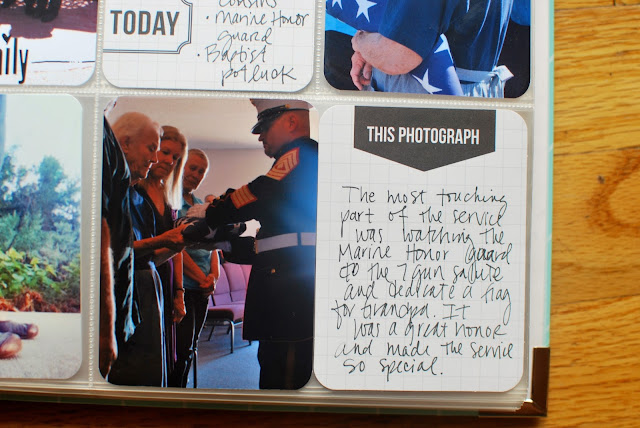 TODAY
cousins
• Marine Honor
guard
• Baptist
potluck
mily
THIS PHOTOGRAPH
The most touching
part of the service
was watching the
Marine Honor guard
do the 7 gun salute
and dedicate a flag
for Grandpa. It
was a great honor
and made the service
so special.